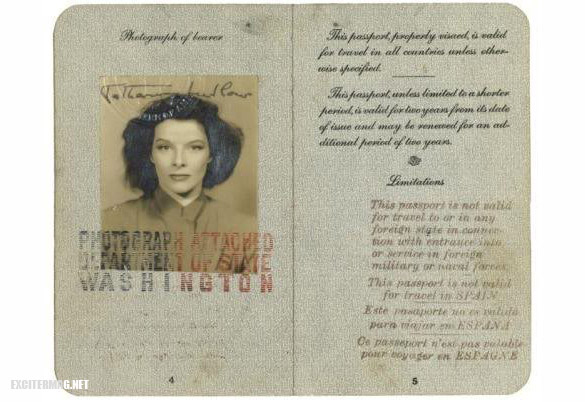 Photograph of bearer
PHOTOGRAPH ATTACHED
DEPARTMENT OF STATE
WASHINGTON
4
This passport, properly visaed, is valid
for travel in all countries unless other-
wise specified.
This passport, unless limited to a shorter
period, is valid for two years from its date
of issue and may be renewed for an ad-
ditional period of two years.
Limitations
This passport is not valid
for travel to or in any
foreign state in connec-
tion with entrance into
or service in foreign
military or naval forces.
This passport is not valid
for travel in SPAIN
Este pasaporte no es valido
para viajar en ESPAÑA
Ce passeport n'est pas valable
pour voyager en ESPAGNE
5
EXCITERMAG.NET